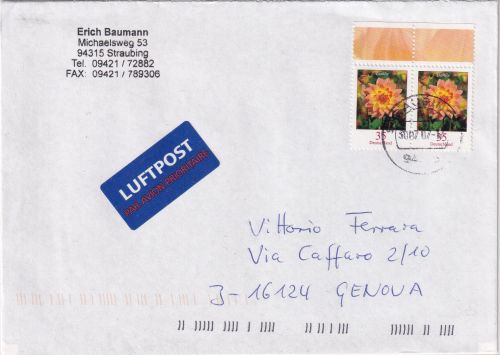 Erich Baumann
Michaelsweg 53
94315 Straubing
Tel. 09421 / 72882
FAX: 09421 / 789306
35
Deutschland
55
Deutschland
LUFTPOST
PAR AVION PRIORITAIRE
Vittorio Ferrara
Via Caffaro 2/10
J-16124 GENOVA